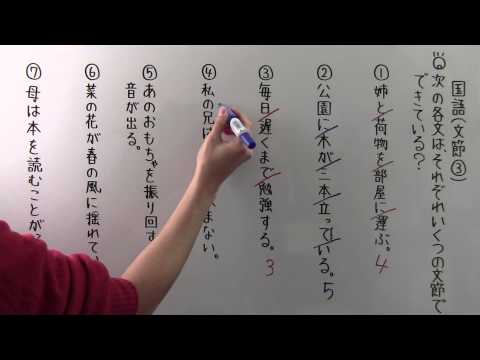 国語(文節③)
Q 次の各文は、それぞれいくつの文節で
できている?
① 姉と荷物を部屋に運ぶ。 4
② 公園に木が三本立っている。 5
③ 毎日遅くまで勉強する。 3
④ 私の兄は まない。
⑤ あのおもちゃを振り回す
音が出る。
⑥ 菜の花が春の風に揺れて、
⑦ 母は本を読むことが